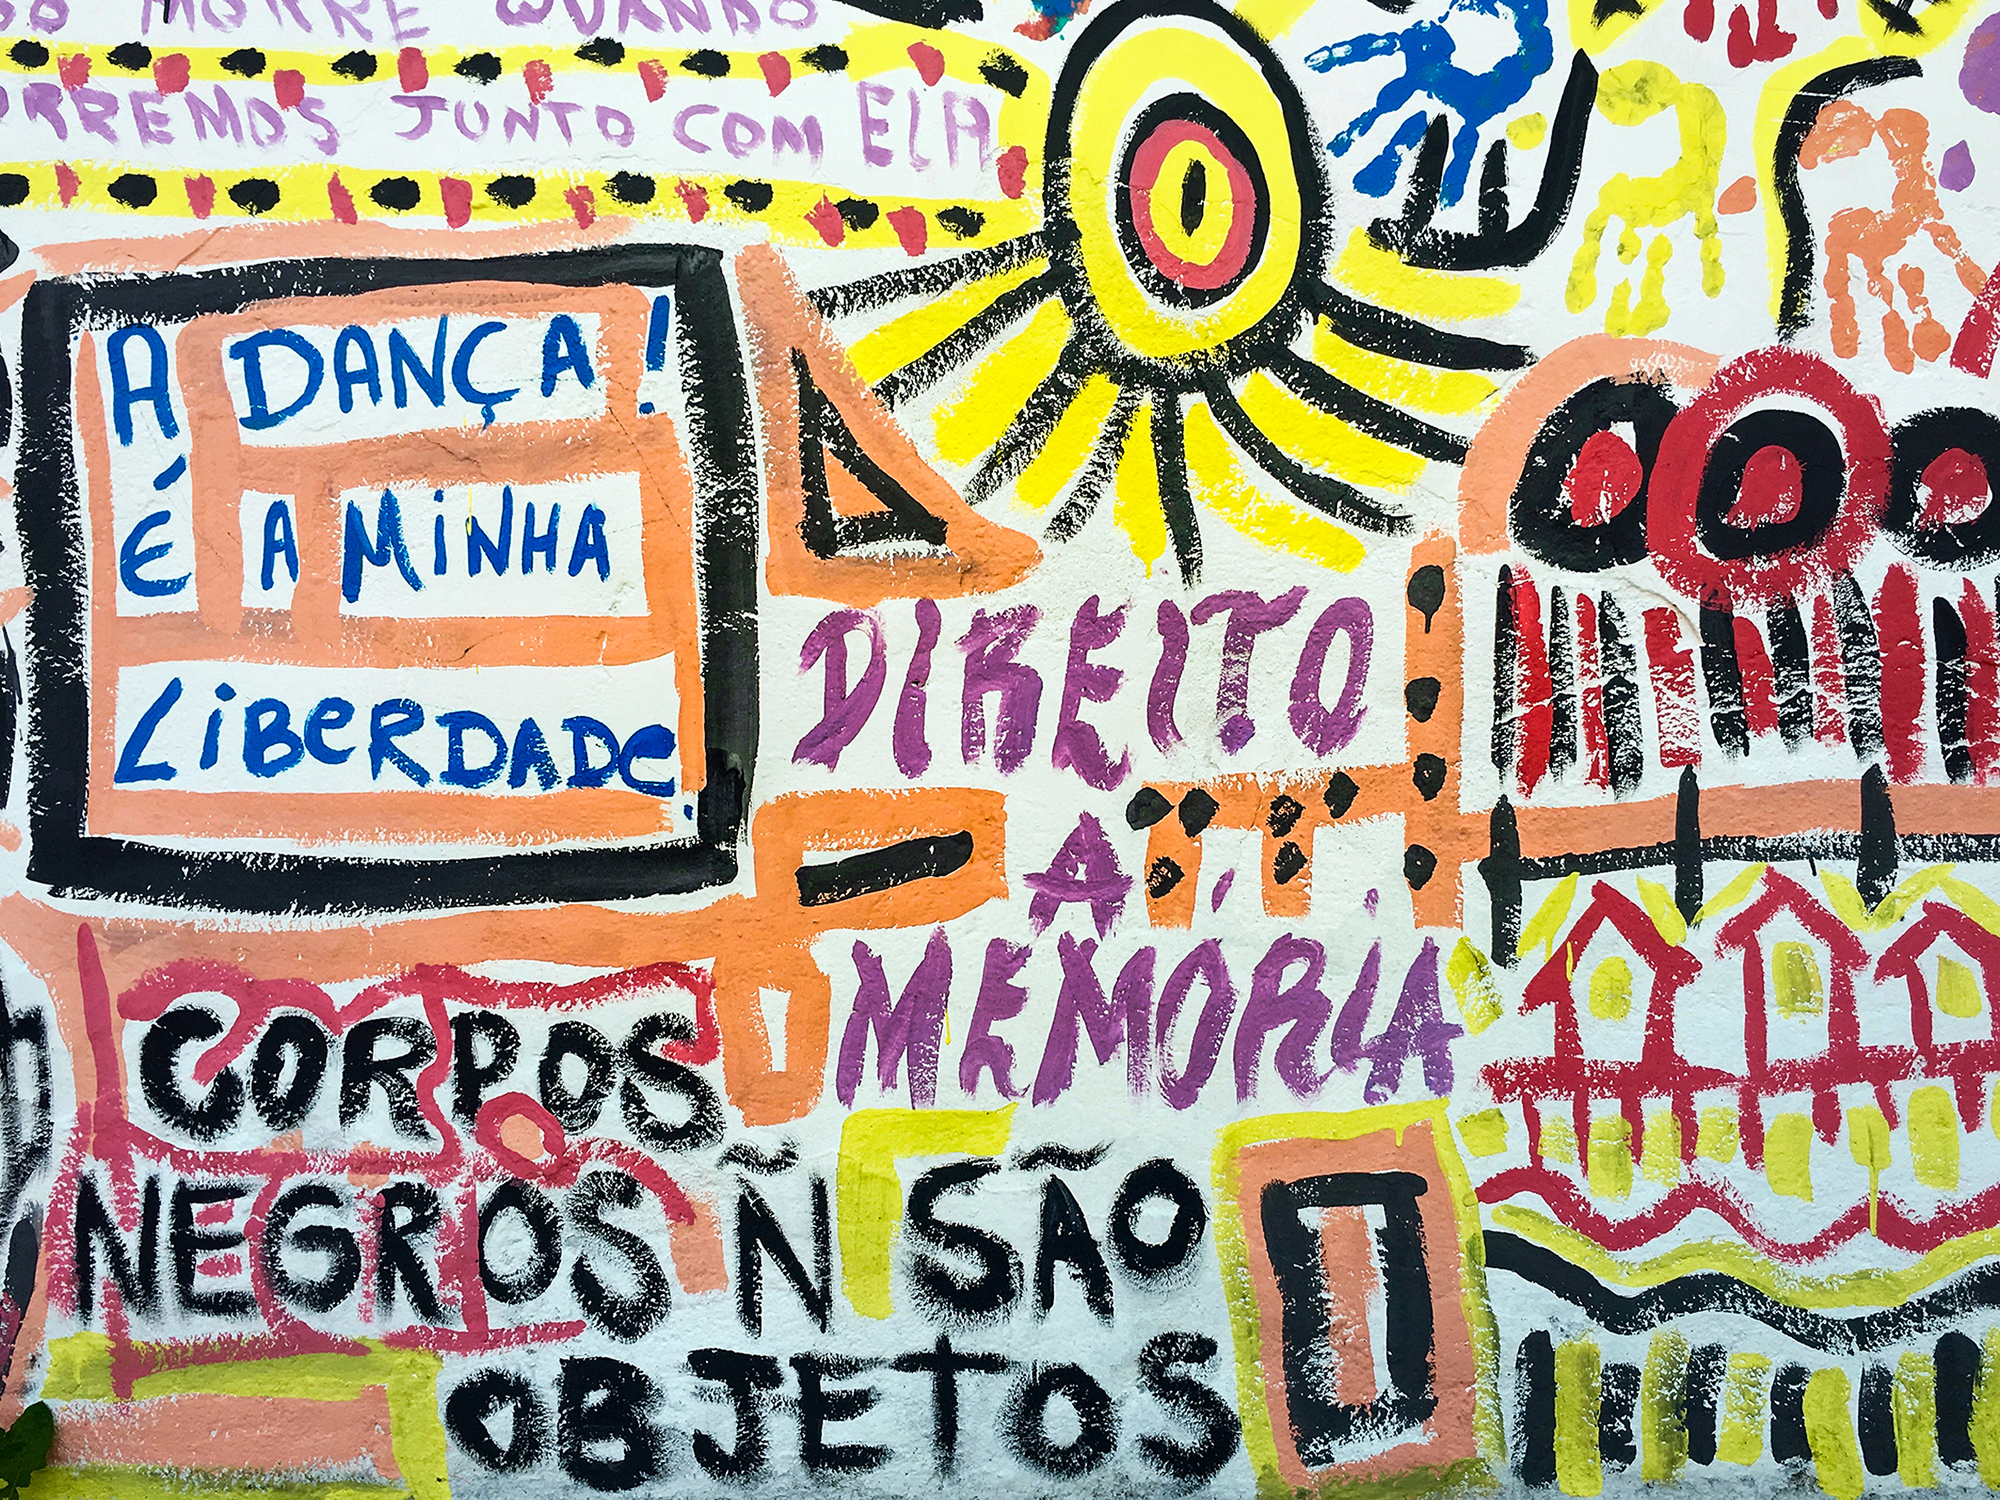 MORRE QUANDO
JUNTO COM ELA
A DANÇA!
É A MINHA
LIBERDADE.
DIREITO
À
MEMÓRIA
CORPOS
NEGROS Ñ SÃO
OBJETOS